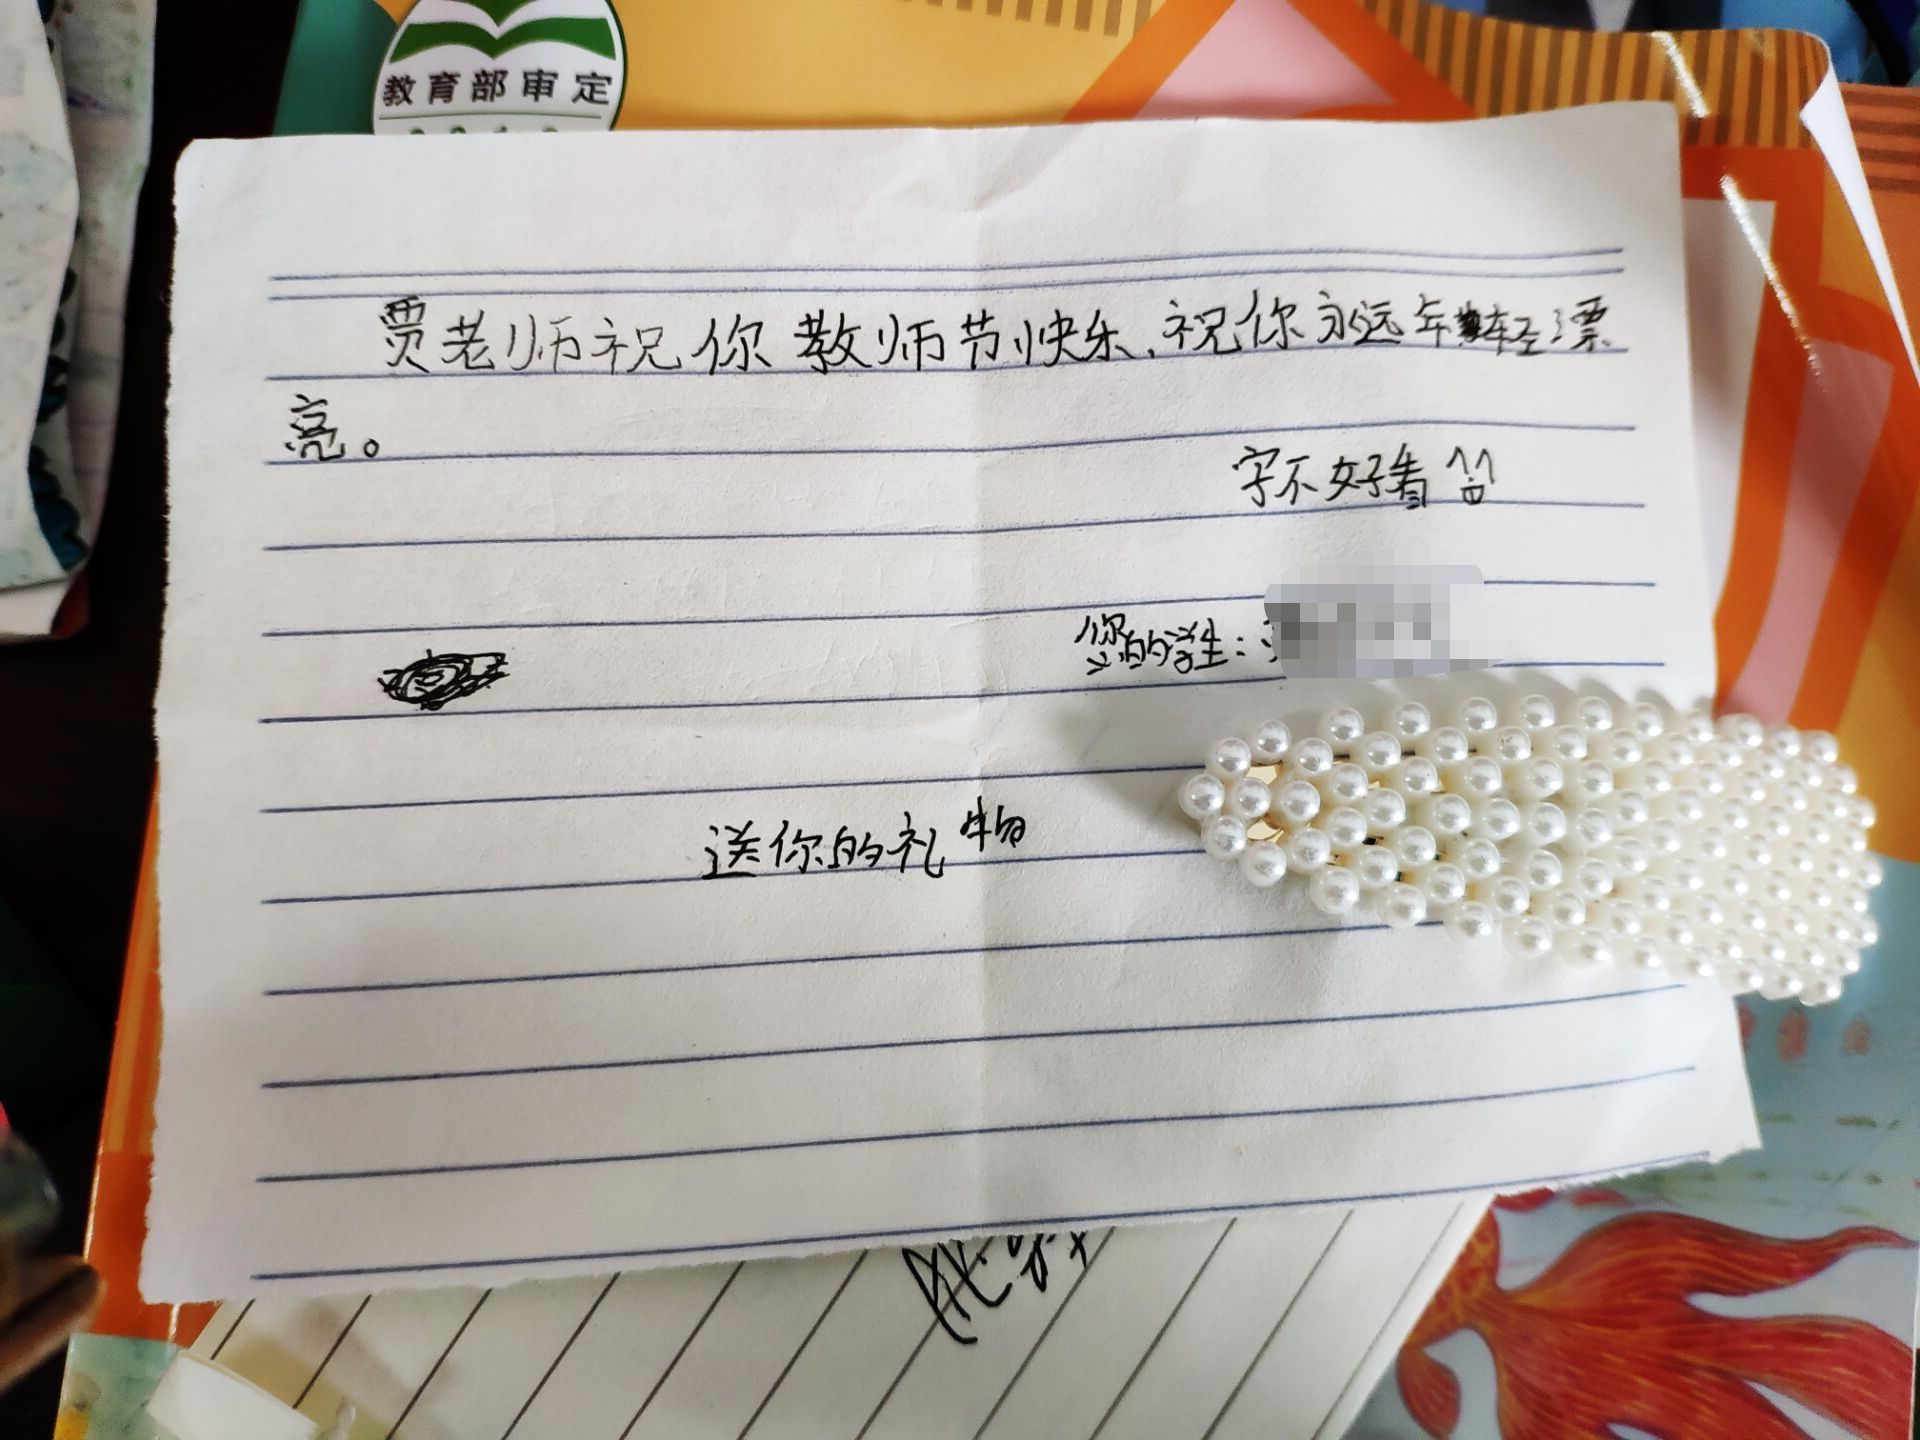 教育部审定
贾老师祝你教师节快乐,祝你永远年轻漂
亮。
字不好看
您的学生:
送你的礼物